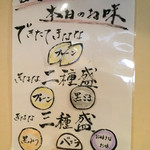 本日のお味
できたてきなな
プレーン
きなな 二種盛
プレーン
黒ごま
きなな 三種盛
黒みつ
お味